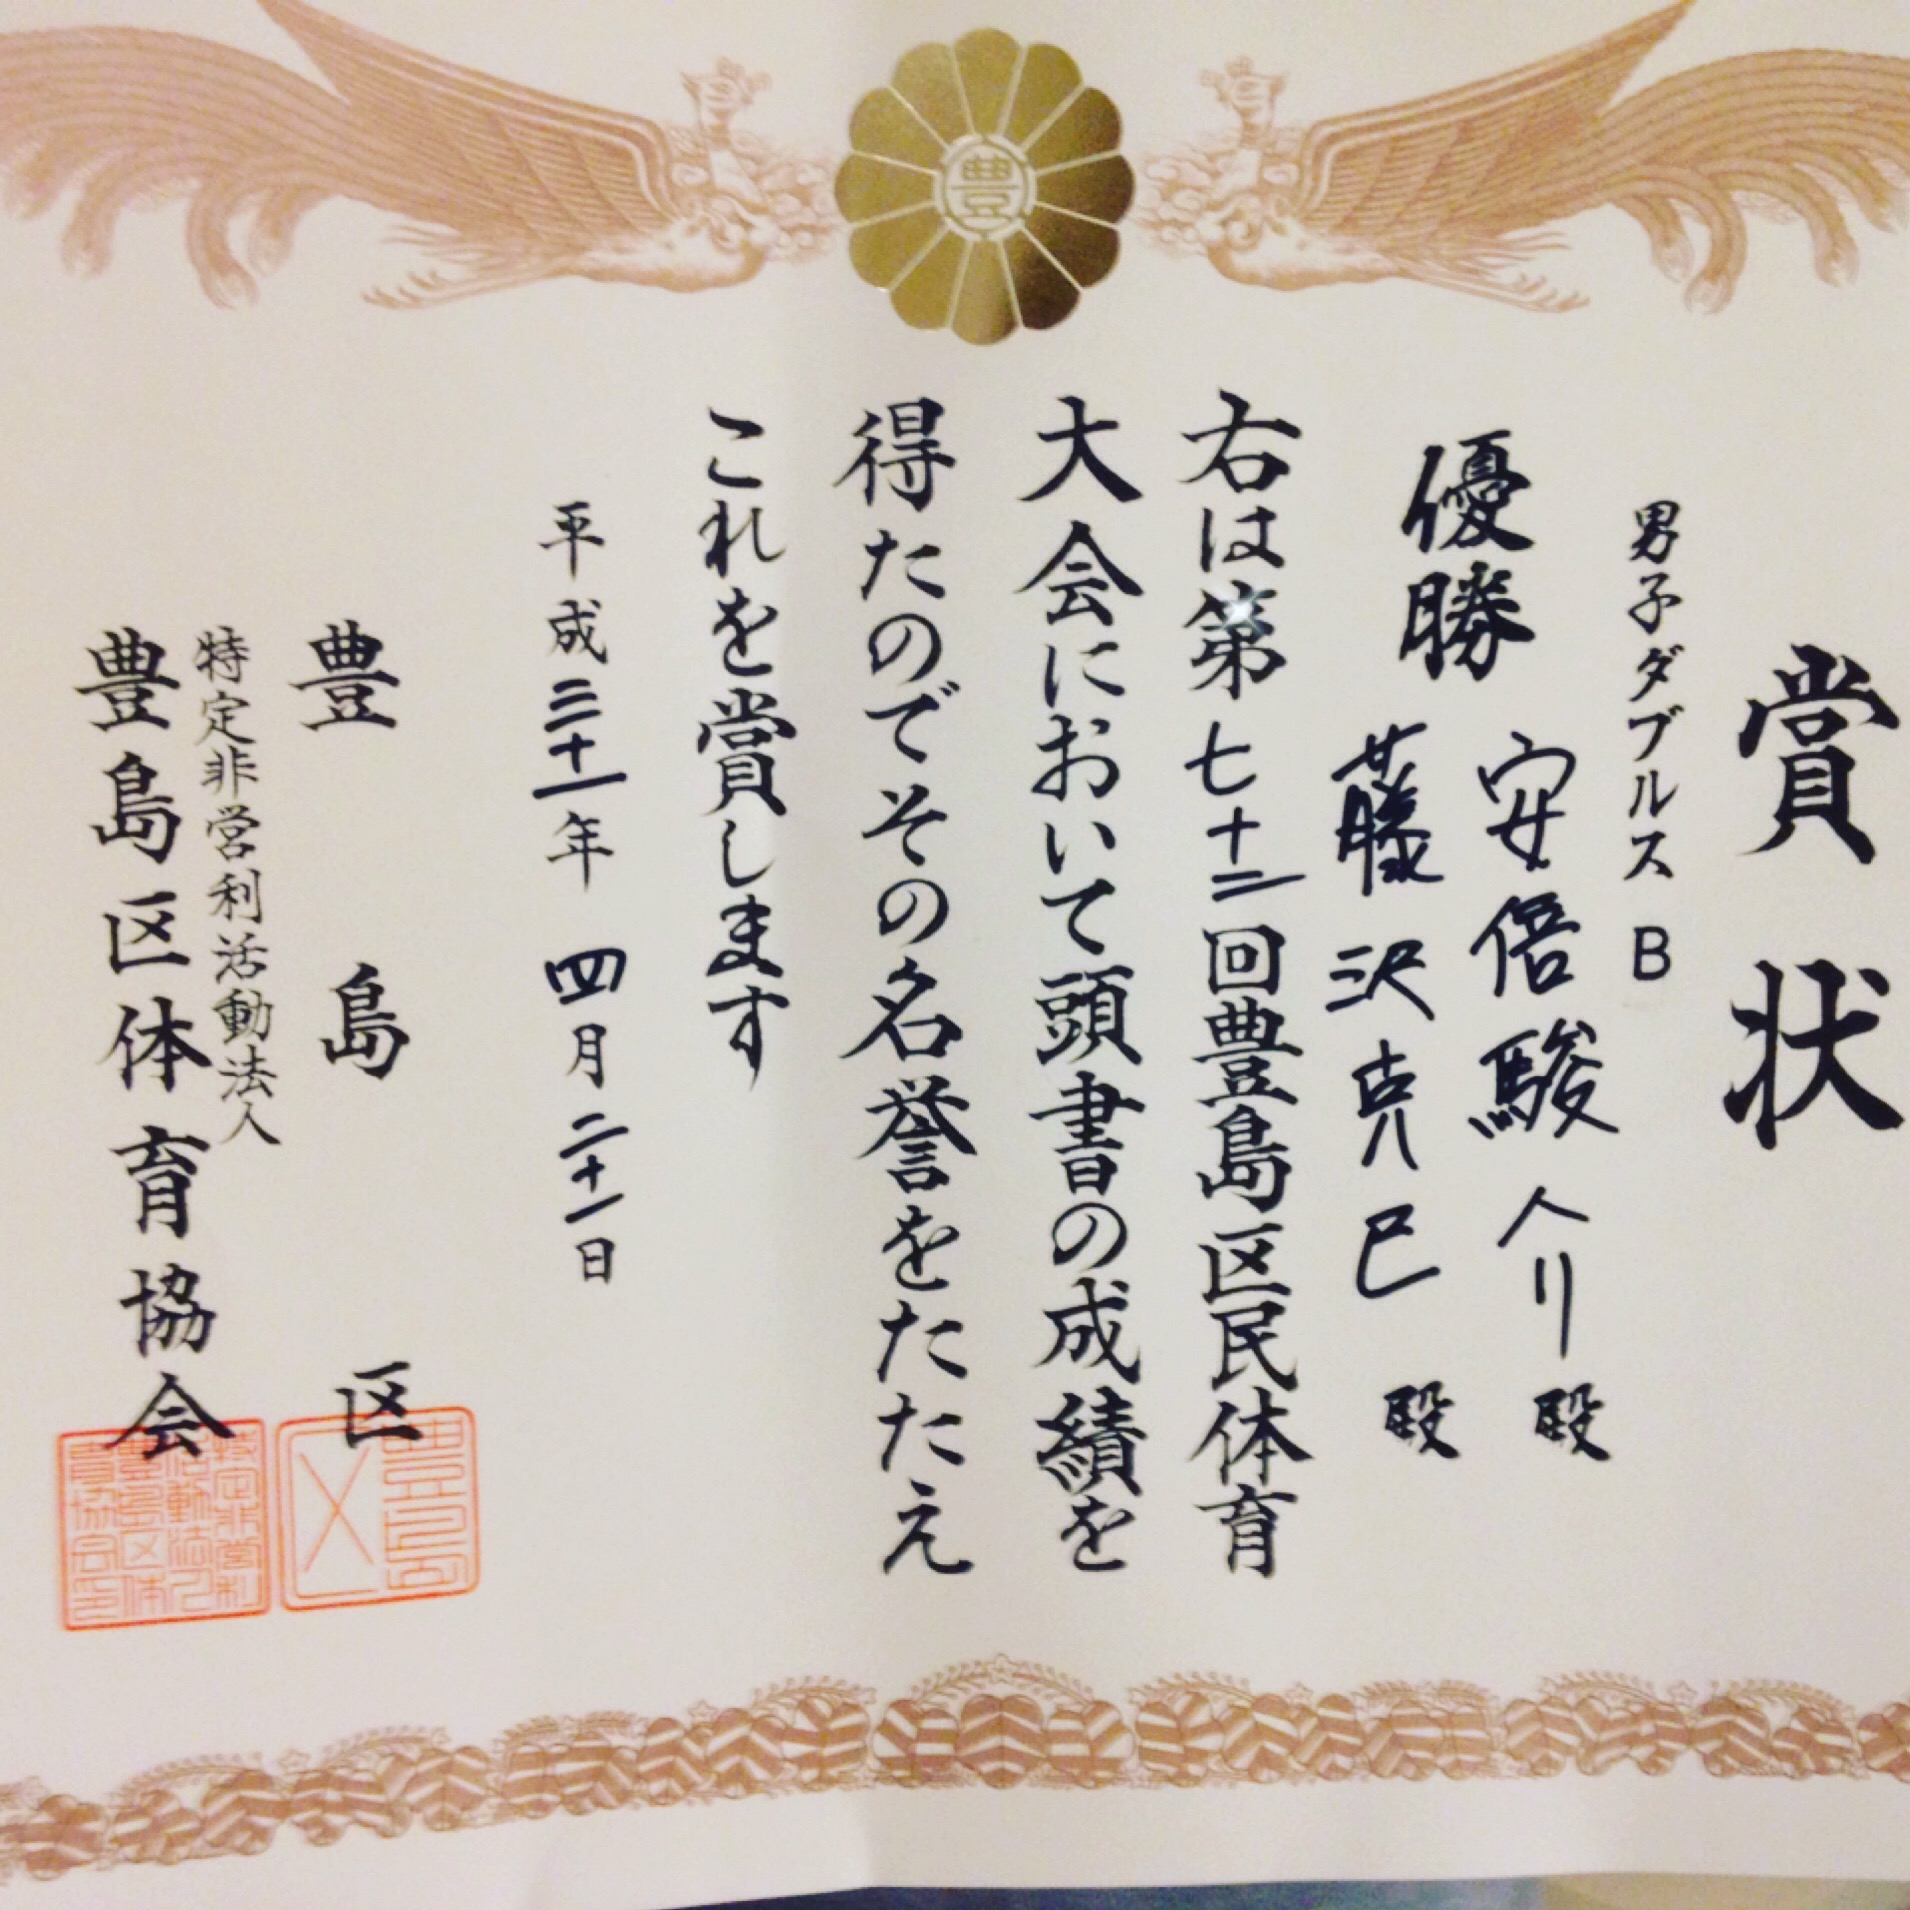 豊
賞状
男子ダブルスB
優勝 安倍駿介殿
藤沢克巳殿
右は第七十二回豊島区民体育
大会において頭書の成績を
得たのでその名誉をたたえ
これを賞します
平成三十一年四月二十一日
豊島区
特定非営利活動法人
豊島区体育協会
豊島区
特定非営利
活動法人
豊島区体
育協会印